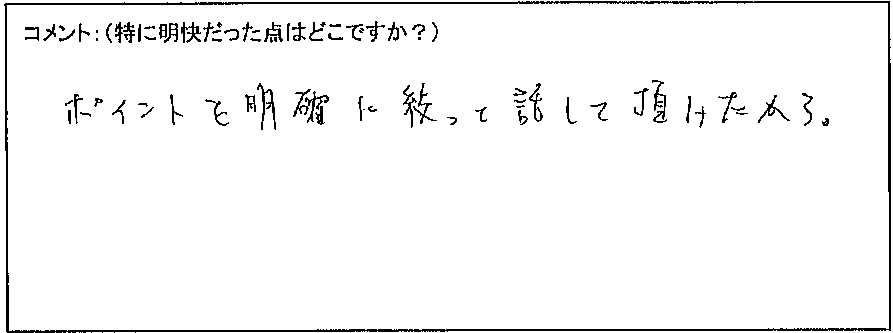 コメント：（特に明快だった点はどこですか？）
ポイントを明確に絞って話して頂けたから。